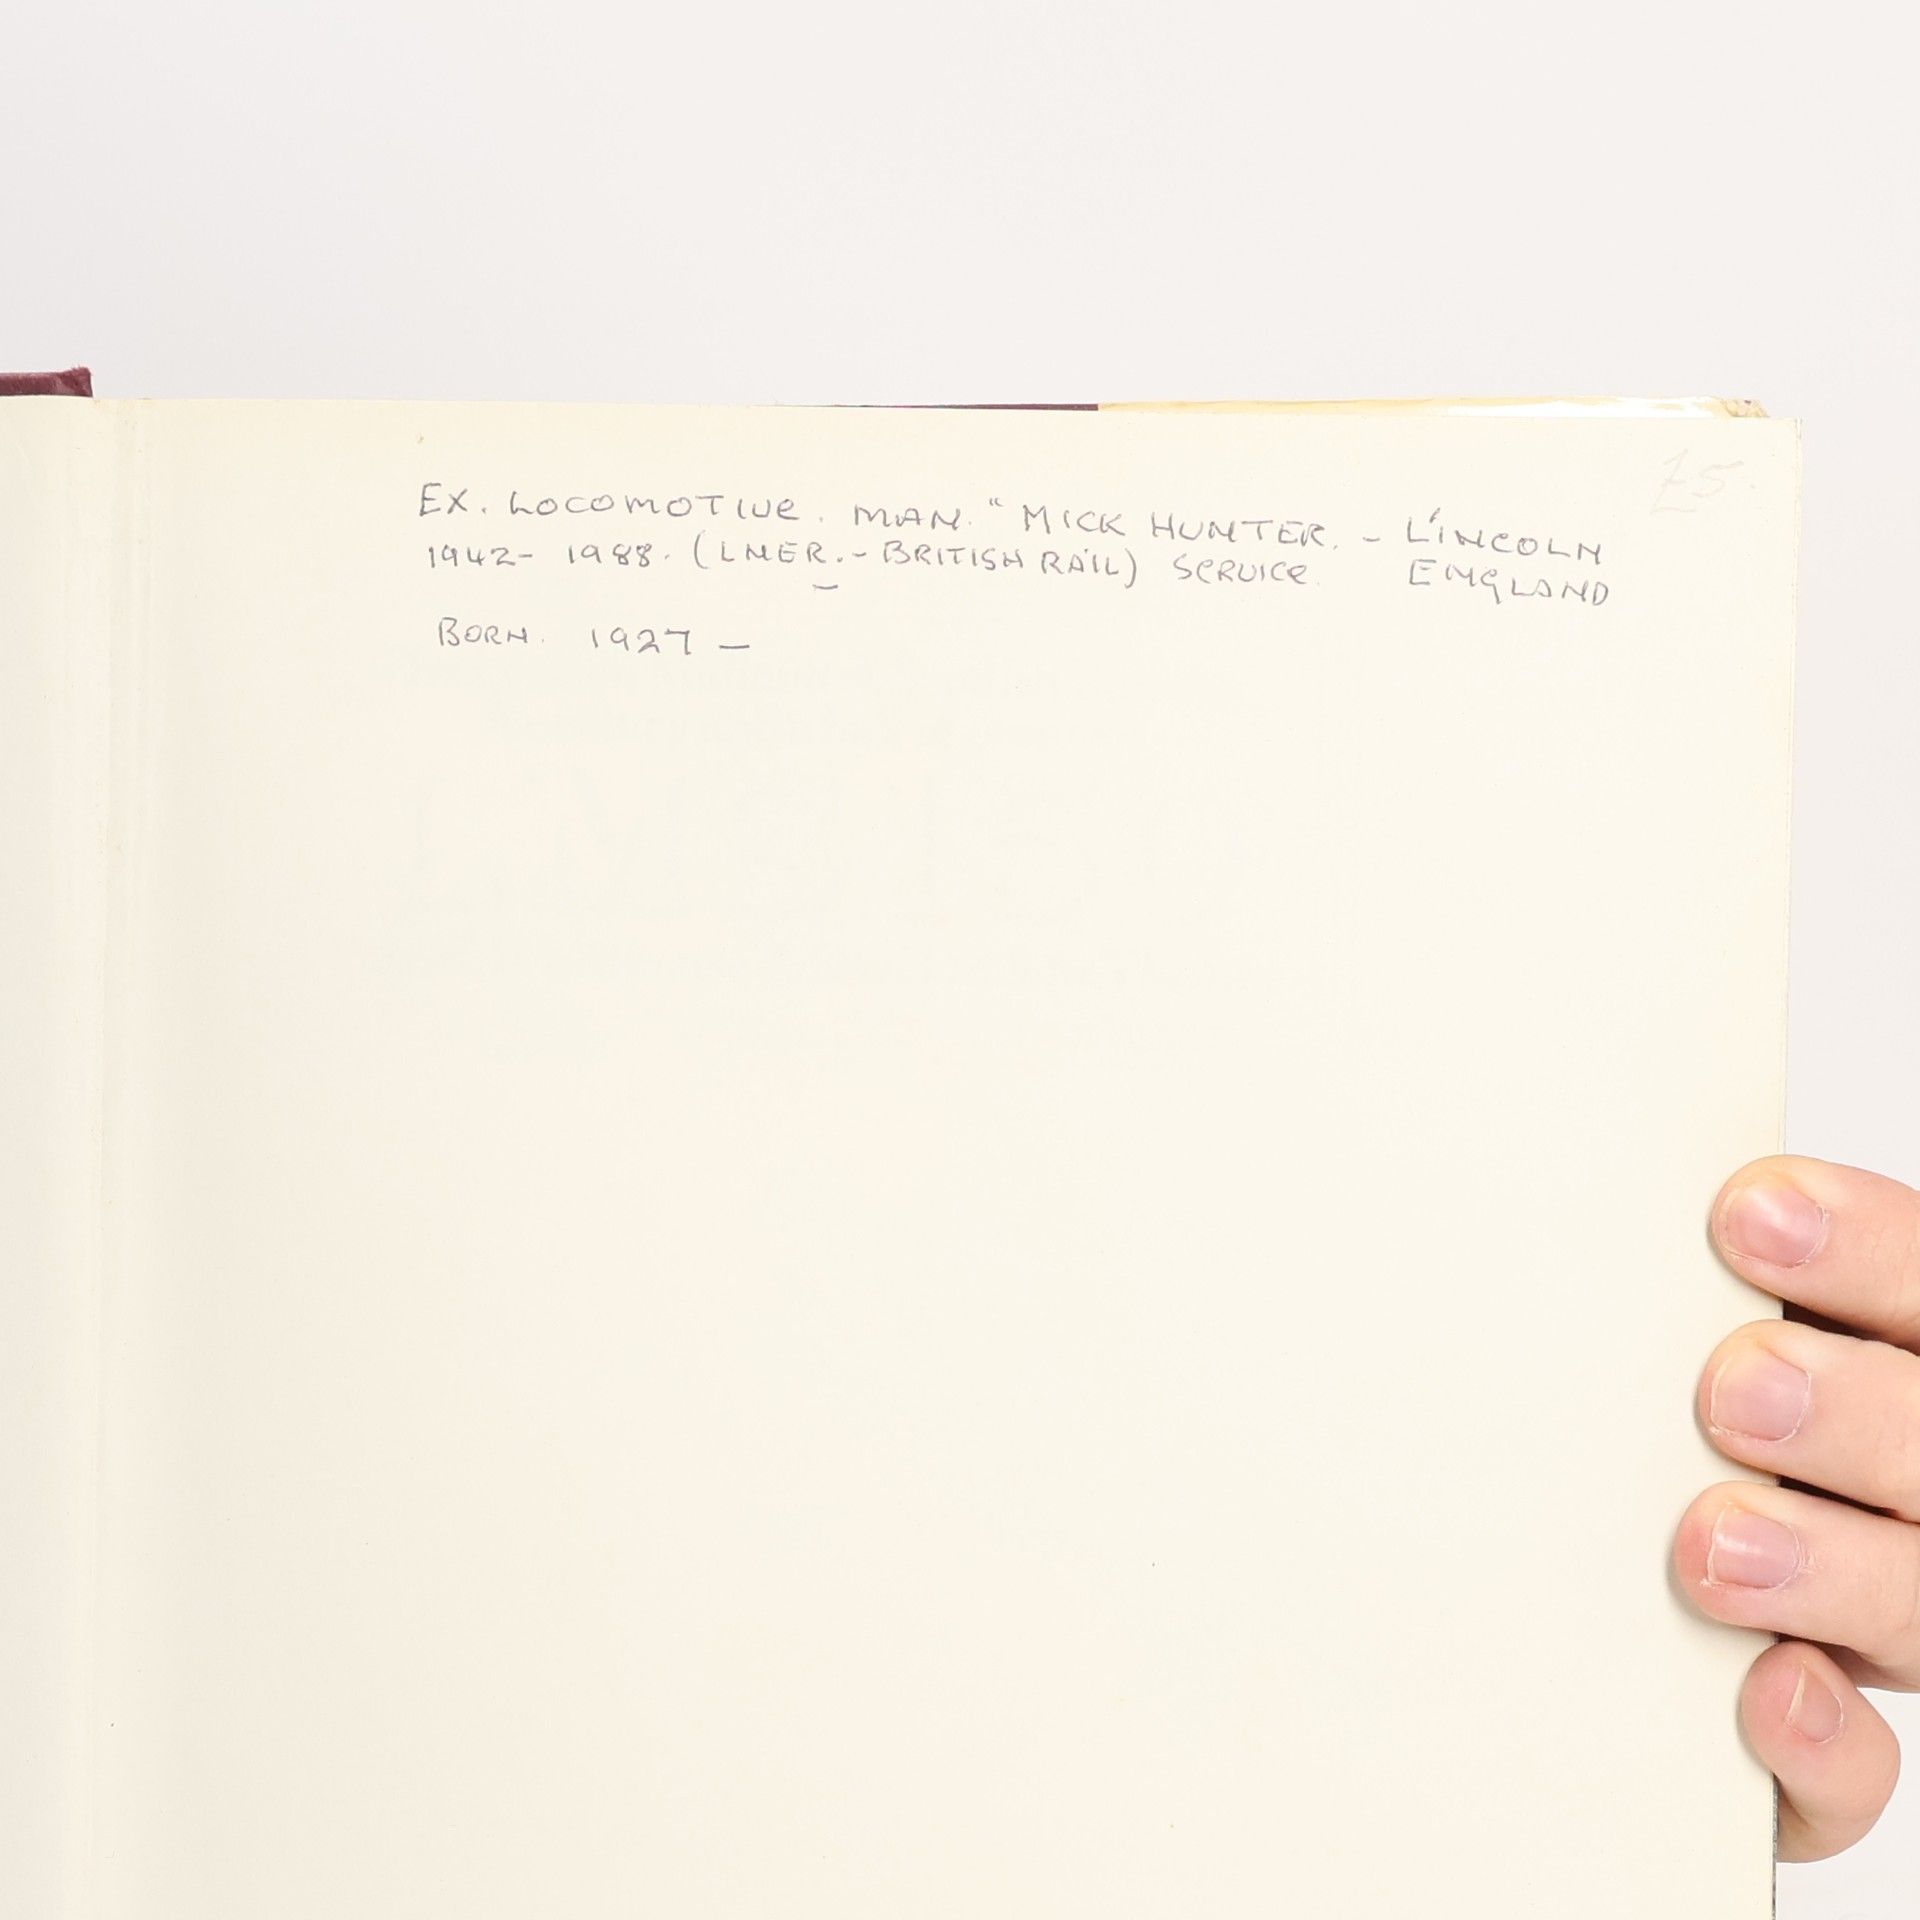 £5.
EX. LOCOMOTIVE. MAN. “ MICK HUNTER. - LINCOLN
1942- 1988. (LNER.- BRITISH RAIL) SERVICE. - ENGLAND
BORN. 1927 -